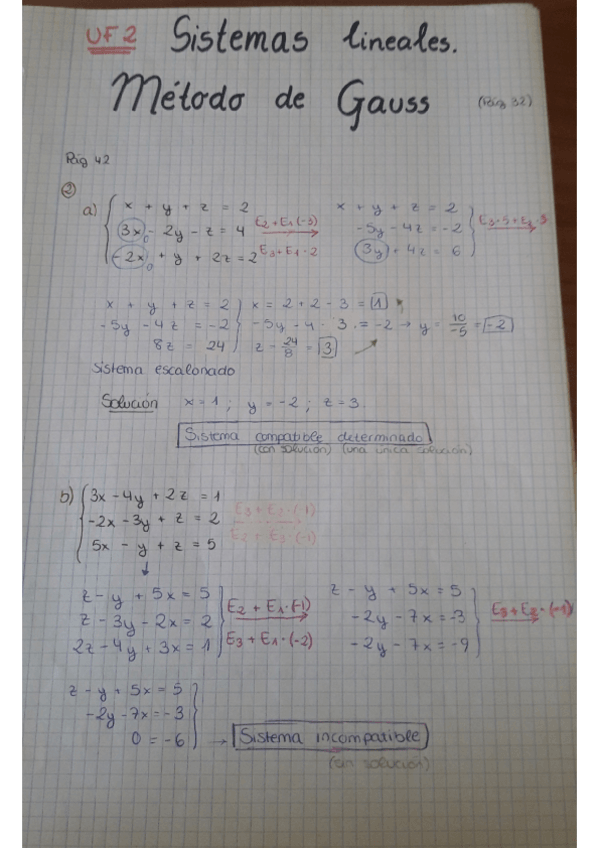 UF2 Sistemas lineales.
Método de Gauss (Pág 32)
Pág 42
②
a) x + y + z = 2
3x - 2y - z = 4
-2x + y + 2z = 2
E2+E1(-3)
E3+E1·2
x + y + z = 2
-5y - 4z = -2
3y + 4z = 6
E3·5+E2·3
x + y + z = 2
-5y - 4z = -2
8z = 24
x = 2 + 2 - 3 = 1
-5y - 4 · 3 = -2 → y = 10/-5 = -2
z = 24/8 = 3
Sistema escalonado
Solución x = 1 ; y = -2 ; z = 3
Sistema compatible determinado
(con solución) (una única solución)
b) 3x - 4y + 2z = 1
-2x - 3y + z = 2
5x - y + z = 5
E3 + E2 · (-1)
z - y + 5x = 5
z - 3y - 2x = 2
2z - 4y + 3x = 1
E2 + E1·(-1)
E3 + E1·(-2)
z - y + 5x = 5
-2y - 7x = -3
-2y - 7x = -9
E3+E2·(-1)
z - y + 5x = 5
-2y - 7x = -3
0 = -6 → Sistema incompatible
(sin solución)